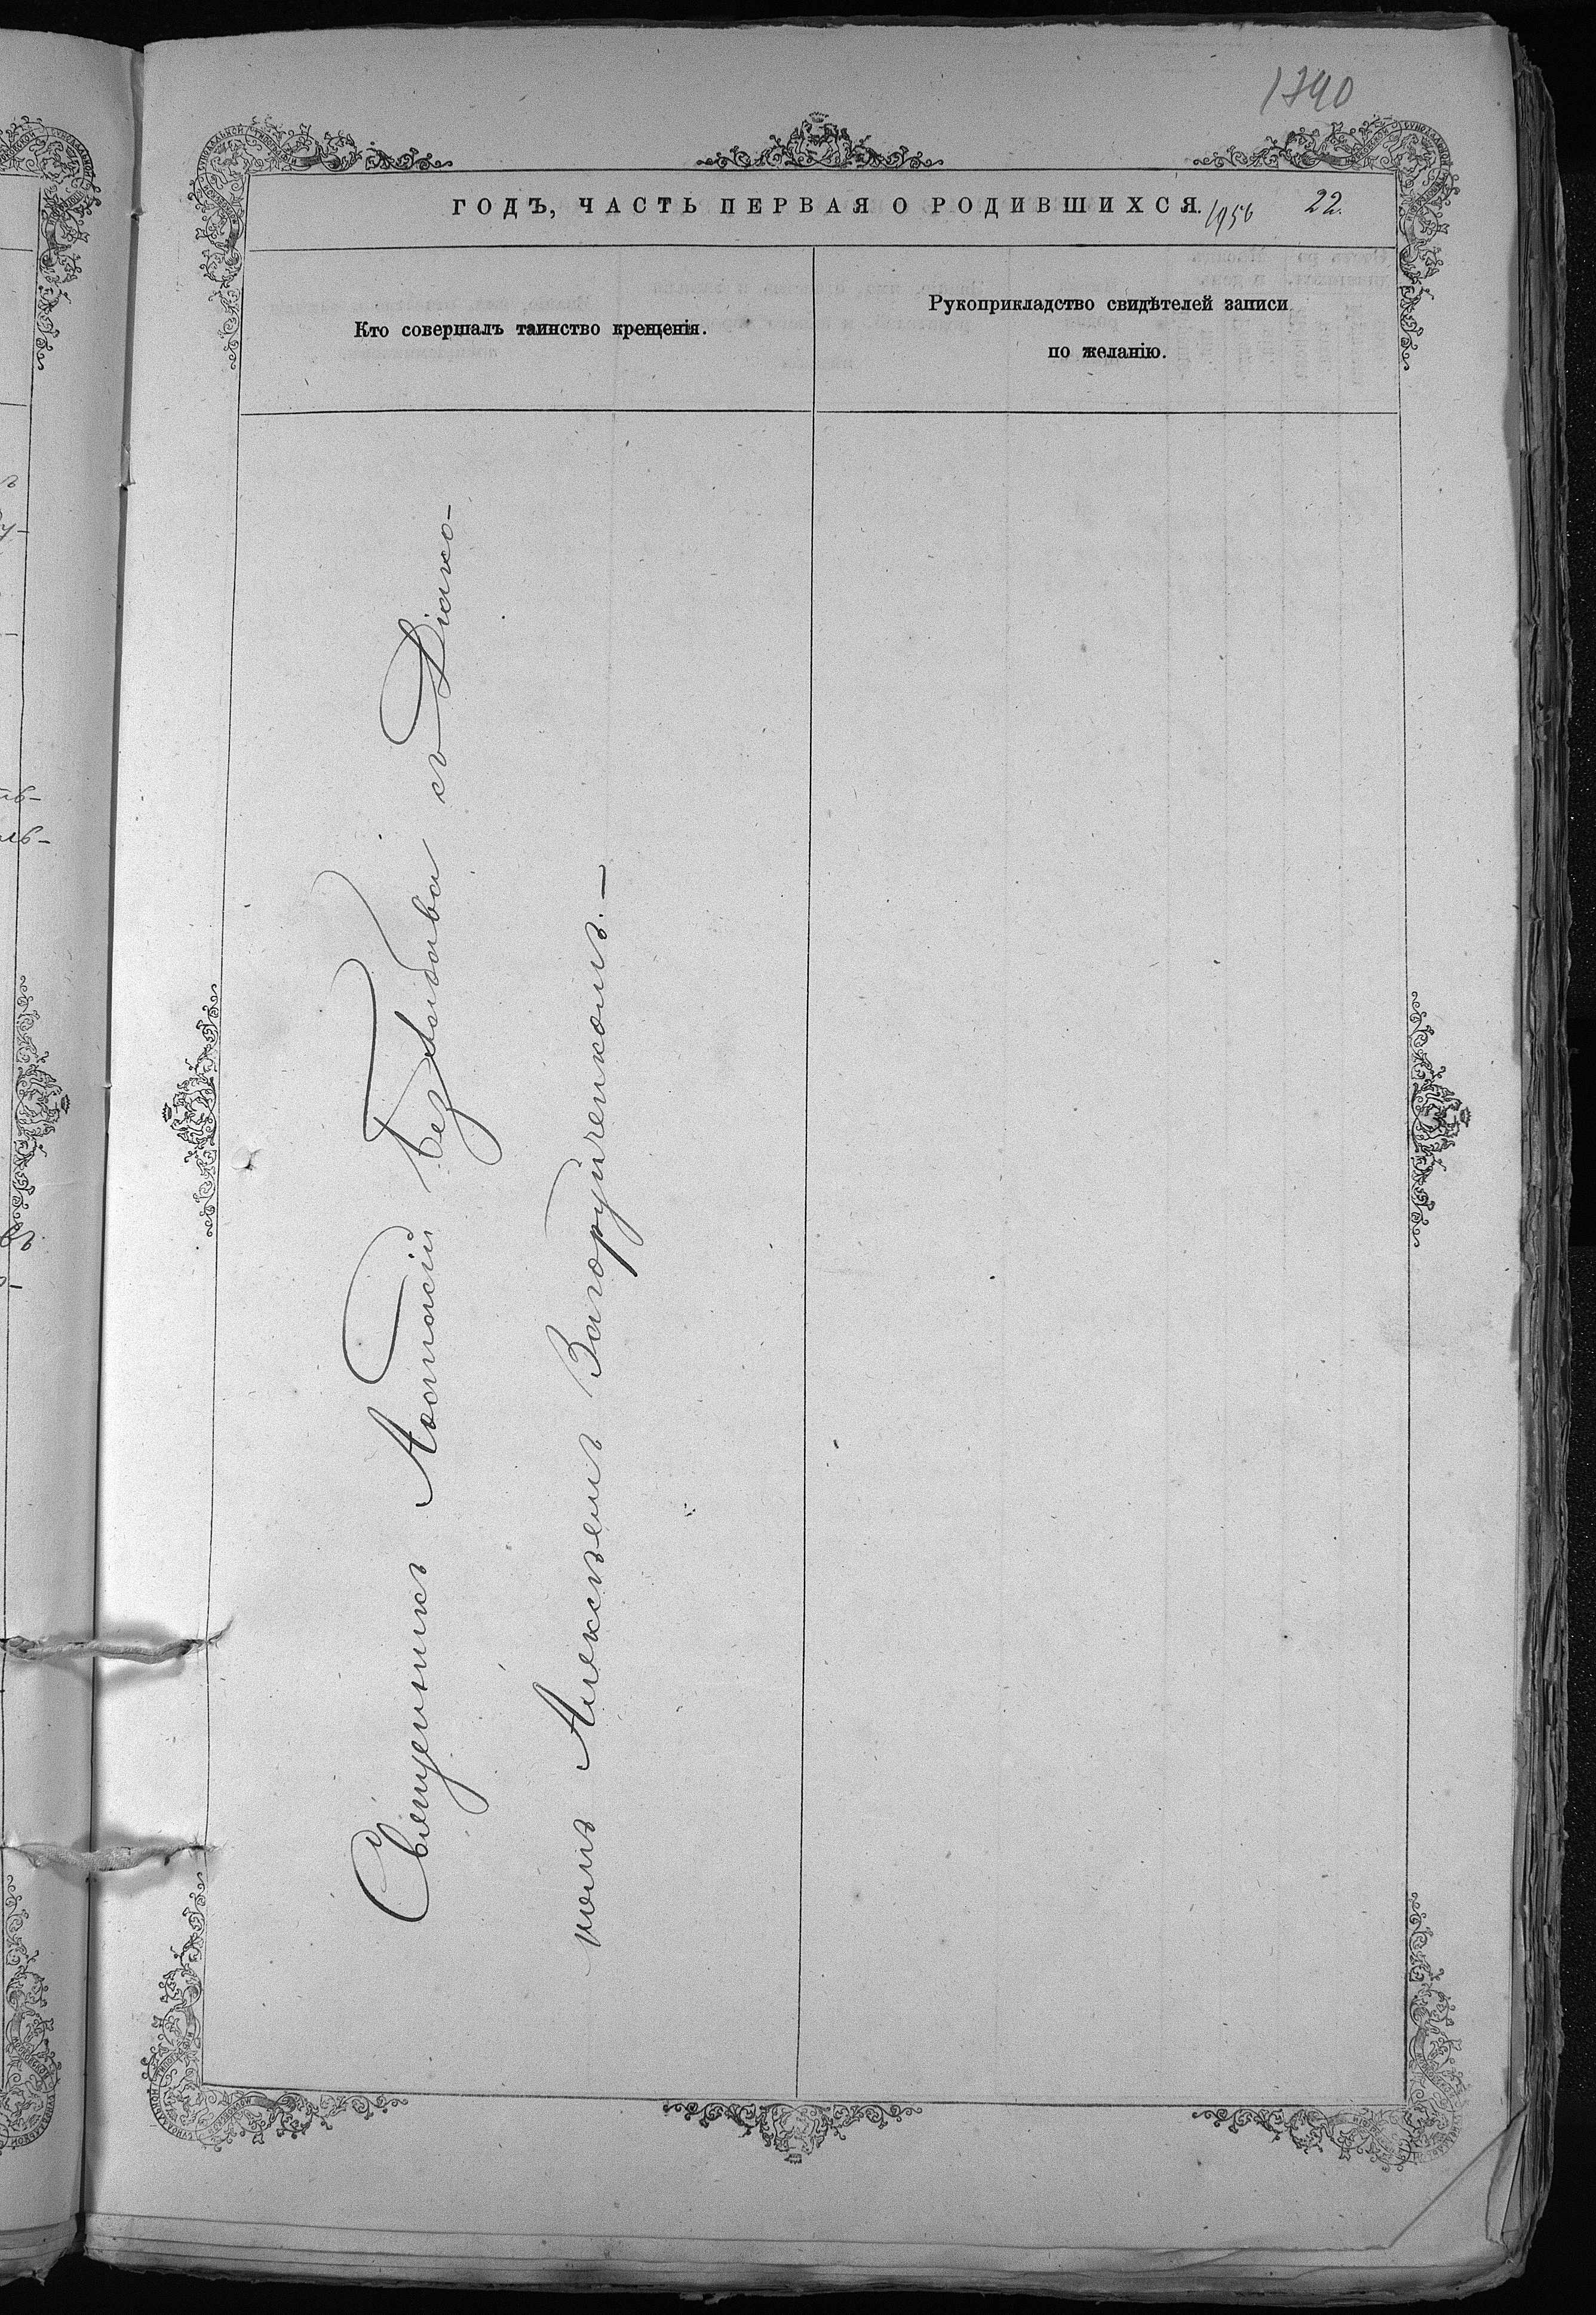 1740
ГОДЪ, ЧАСТЬ ПЕРВАЯ О РОДИВШИХСЯ.
1956
22.
Кто совершалъ таинство крещенія.
Рукоприкладство свидѣтелей записи
по желанію.
Священникъ Аѳанасій съ Діако-
номъ Алексѣемъ Загоруйченкомъ.—